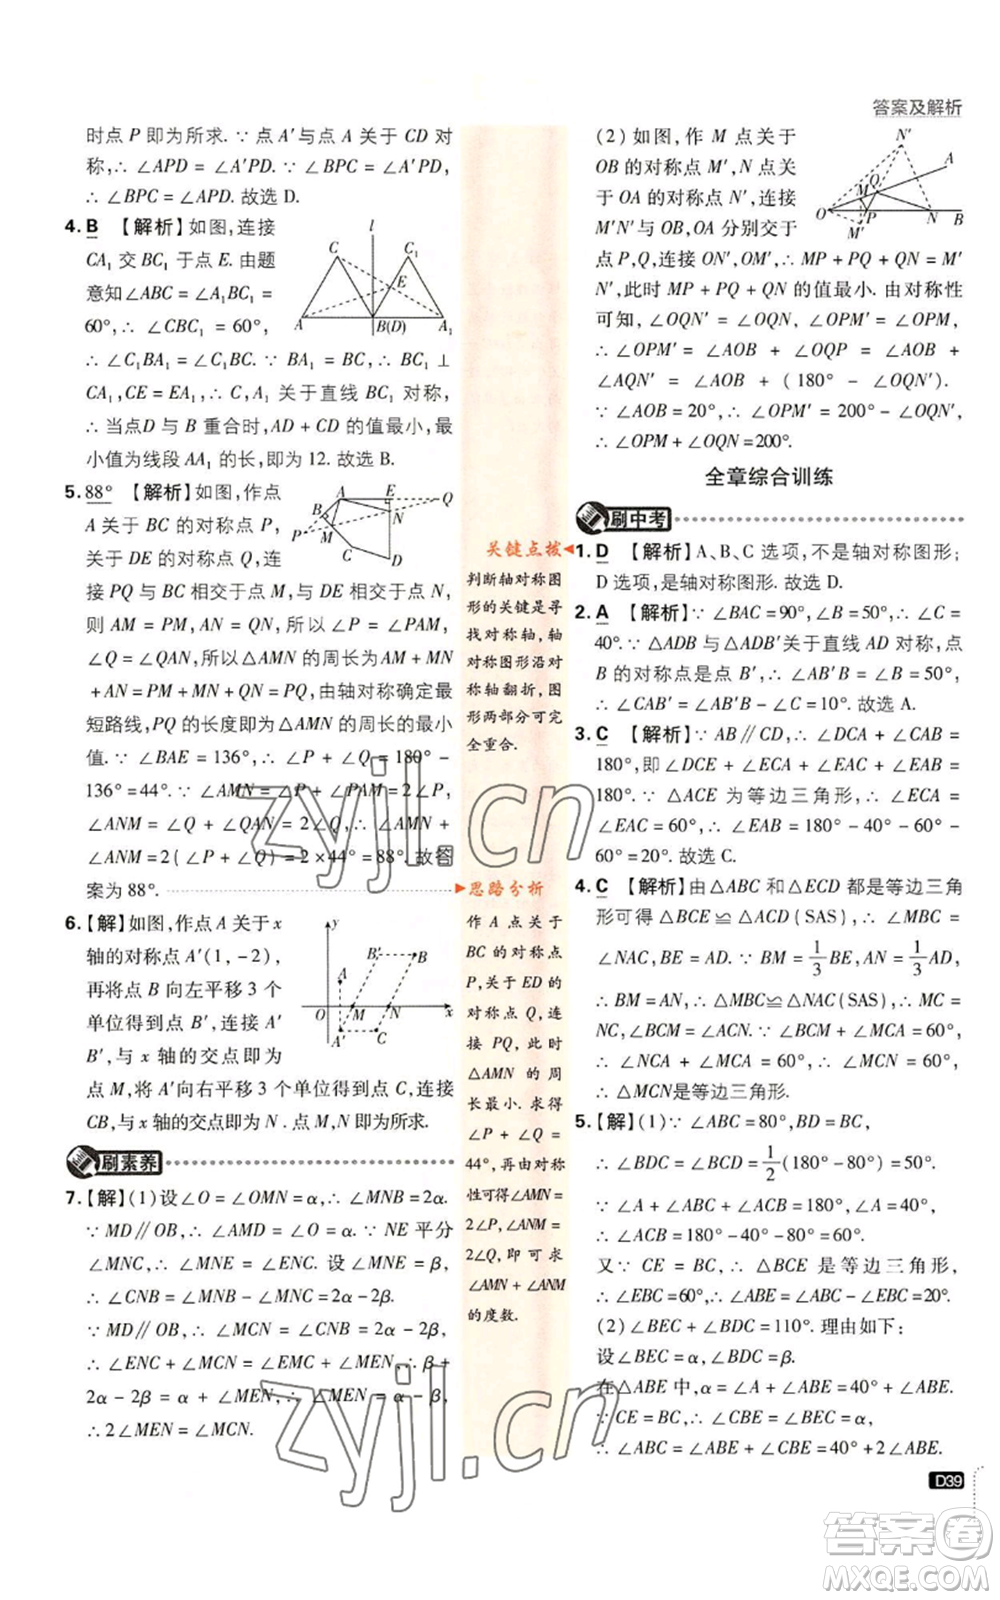 答案及解析
时点 P 即为所求. ∵ 点 A′与点 A 关于 CD 对
称,∴ ∠APD = ∠A′PD. ∵ ∠BPC = ∠A′PD,
∴ ∠BPC = ∠APD. 故选 D.
4. B 【解析】如图,连接
CA₁ 交 BC₁ 于点 E. 由题
意知∠ABC = ∠A₁BC₁ =
60°,∴ ∠CBC₁ = 60°,
∴ ∠C₁BA₁ = ∠CBC₁. ∵ BA₁ = BC,∴ BC₁ ⊥
CA₁,CE = EA₁,∴ C,A₁ 关于直线 BC₁ 对称,
∴ 当点D 与 B 重合时,AD + CD 的值最小,最
小值为线段 AA₁ 的长,即为 12. 故选 B.
C
l
C₁
E
A
B(D)
A₁
5. 88° 【解析】如图,作点
A 关于 BC 的对称点 P,
关于 DE 的对称点 Q,连
接 PQ 与 BC 相交于点 M,与 DE 相交于点 N,
则 AM = PM,AN = QN,所以 ∠P = ∠PAM,
∠Q = ∠QAN,所以△AMN 的周长为 AM + MN
+ AN = PM + MN + QN = PQ,由轴对称确定最
短路线,PQ 的长度即为△AMN 的周长的最小
值. ∵ ∠BAE = 136°,∴ ∠P + ∠Q = 180° -
136° = 44°. ∵ ∠AMN = ∠P + ∠PAM = 2∠P,
∠ANM = ∠Q + ∠QAN = 2∠Q,∴ ∠AMN +
∠ANM = 2(∠P + ∠Q) = 2 × 44° = 88°. 故答
案为 88°.
A
E
Q
B
N
P
M
C
D
6. 【解】如图,作点 A 关于 x
轴的对称点 A′(1, -2),
再将点 B 向左平移 3 个
单位得到点 B′,连接 A′
B′,与 x 轴的交点即为
点 M,将 A′向右平移 3 个单位得到点 C,连接
CB,与 x 轴的交点即为 N. 点 M,N 即为所求.
y
B′
B
A
O
M
N
x
A′
C
刷素养
7. 【解】(1)设∠O = ∠OMN = α,∴ ∠MNB = 2α.
∵ MD∥OB,∴ ∠AMD = ∠O = α. ∵ NE 平分
∠MNC,∴ ∠MNE = ∠ENC. 设 ∠MNE = β,
∴ ∠CNB = ∠MNB - ∠MNC = 2α - 2β.
∵ MD∥OB,∴ ∠MCN = ∠CNB = 2α - 2β,
∴ ∠ENC + ∠MCN = ∠EMC + ∠MEN = β +
2α - 2β = α + ∠MEN,∴ ∠MEN = α - β,
∴ 2∠MEN = ∠MCN.
关键点拨
判断轴对称图
形的关键是寻
找对称轴,轴
对称图形沿对
称轴翻折,图
形两部分可完
全重合.
思路分析
作 A 点关于
BC 的对称点
P,关于 ED 的
对称点 Q,连
接 PQ,此时
△AMN 的周
长最小. 求得
∠P + ∠Q =
44°,再由对称
性可得∠AMN =
2∠P,∠ANM =
2∠Q,即可求
∠AMN + ∠ANM
的度数.
(2)如图,作 M 点关于
OB 的对称点 M′,N 点关
于 OA 的对称点 N′,连接
M′N′与 OB,OA 分别交于
点 P,Q,连接 ON′,OM′,∴ MP + PQ + QN = M′
N′,此时 MP + PQ + QN 的值最小. 由对称性
可知,∠OQN′ = ∠OQN,∠OPM′ = ∠OPM,
∴ ∠OPM′ = ∠AOB + ∠OQP = ∠AOB +
∠AQN′ = ∠AOB + (180° - ∠OQN′).
∵ ∠AOB = 20°,∴ ∠OPM′ = 200° - ∠OQN′,
∴ ∠OPM + ∠OQN = 200°.
N′
A
M
Q
O
P
N
B
M′
全章综合训练
刷中考
1. D 【解析】A、B、C 选项,不是轴对称图形;
D 选项,是轴对称图形. 故选 D.
2. A 【解析】∵ ∠BAC = 90°,∠B = 50°,∴ ∠C =
40°. ∵ △ADB 与△ADB′关于直线 AD 对称,点
B 的对称点是点 B′,∴ ∠AB′B = ∠B = 50°,
∴ ∠CAB′ = ∠AB′B - ∠C = 10°. 故选 A.
3. C 【解析】∵ AB∥CD,∴ ∠ACD + ∠CAB =
180°,即 ∠DCE + ∠ECA + ∠EAC + ∠EAB =
180°. ∵ △ACE 为等边三角形,∴ ∠ECA =
∠EAC = 60°,∴ ∠EAB = 180° - 40° - 60° -
60° = 20°. 故选 C.
4. C 【解析】由 △ABC 和 △ECD 都是等边三角
形可得 △BCE ≌ △ACD(SAS),∴ ∠MBC =
∠NAC,BE = AD. ∵ BM = 1/3 BE,AN = 1/3 AD,
∴ BM = AN,∴ △MBC≌△NAC(SAS),∴ MC =
NC,∠BCM = ∠ACN. ∵ ∠BCM + ∠MCA = 60°,
∴ ∠ACN + ∠MCA = 60°,∴ ∠MCN = 60°,
∴ △MCN是等边三角形.
5. 【解】(1)∵ ∠ABC = 80°,BD = BC,
∴ ∠BDC = ∠BCD = 1/2(180° - 80°) = 50°.
∵ ∠A + ∠ABC + ∠ACB = 180°,∠A = 40°,
∴ ∠ACB = 180° - 40° - 80° = 60°.
又∵ CE = BC,∴ △BCE 是等边三角形,
∴ ∠EBC = 60°,∴ ∠ABE = ∠ABC - ∠EBC = 20°.
(2)∠BEC + ∠BDC = 110°. 理由如下:
设∠BEC = α,∠BDC = β.
在△ABE 中,α = ∠A + ∠ABE = 40° + ∠ABE.
∵ CE = BC,∴ ∠CBE = ∠BEC = α,
∴ ∠ABC = ∠ABE + ∠CBE = 40° + 2∠ABE.
D39
zyjl.cn
zyjl.cn
答案圈
MXQE.COM